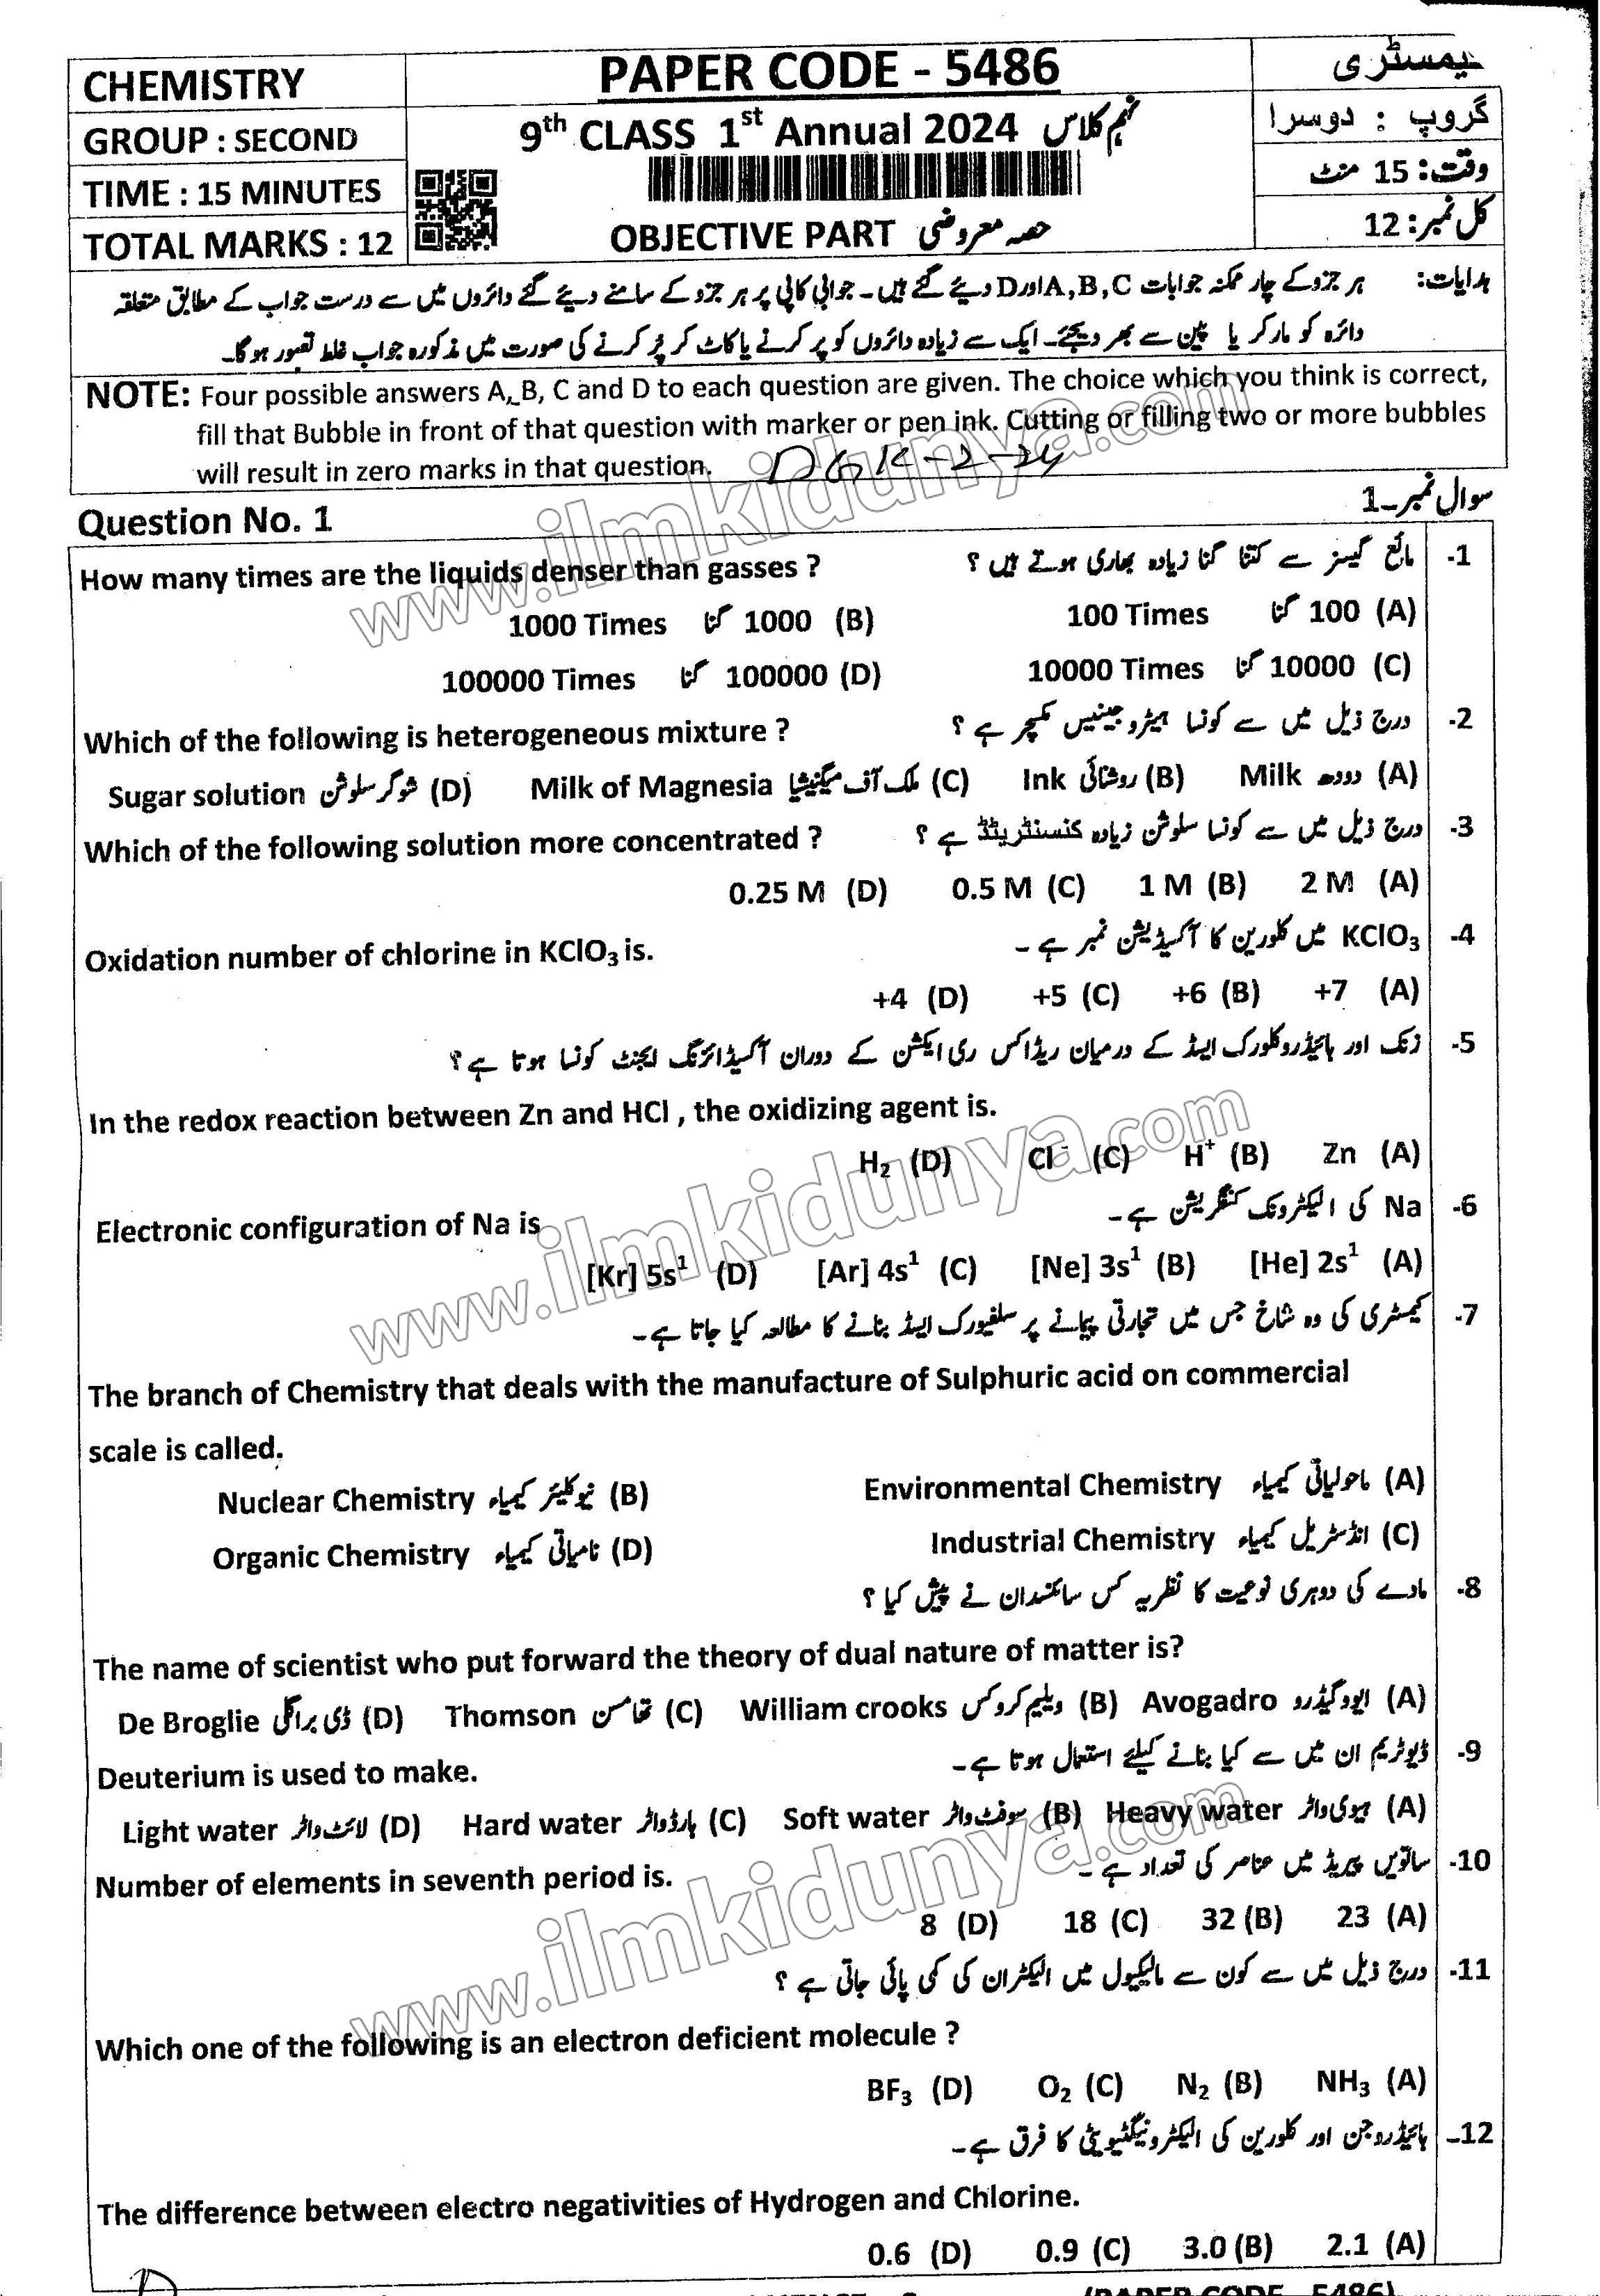 CHEMISTRY
PAPER CODE - 5486
کیمسٹری
GROUP : SECOND
9th CLASS 1st Annual 2024 نہم کلاس
گروپ : دوسرا
TIME : 15 MINUTES
وقت: 15 منٹ
TOTAL MARKS : 12
OBJECTIVE PART حصہ معروضی
کل نمبر: 12
ہدایات: ہر جزو کے چار ممکنہ جوابات A,B,C اور D دیئے گئے ہیں۔ جوابی کاپی پر ہر جزو کے سامنے دیئے گئے دائروں میں سے درست جواب کے مطابق متعلقہ
دائرہ کو مارکر یا پین سے بھر دیجئے۔ ایک سے زیادہ دائروں کو پر کرنے یا کاٹ کر پُر کرنے کی صورت میں مذکورہ جواب غلط تصور ہوگا۔
NOTE: Four possible answers A, B, C and D to each question are given. The choice which you think is correct,
fill that Bubble in front of that question with marker or pen ink. Cutting or filling two or more bubbles
will result in zero marks in that question. DGK-2-24
Question No. 1 سوال نمبر۔1
How many times are the liquids denser than gasses ? مائع گیسز سے کتنا گنا زیادہ بھاری ہوتے ہیں ؟ -1
1000 Times گنا 1000 (B) 100 Times گنا 100 (A)
100000 Times گنا 100000 (D) 10000 Times گنا 10000 (C)
Which of the following is heterogeneous mixture ? درج ذیل میں سے کونسا ہیٹروجینیس مکسچر ہے ؟ -2
Sugar solution شوگر سلوشن (D) Milk of Magnesia ملک آف میگنیشیا (C) Ink روشنائی (B) Milk دودھ (A)
Which of the following solution more concentrated ? درج ذیل میں سے کونسا سلوشن زیادہ کنسنٹریٹڈ ہے ؟ -3
0.25 M (D) 0.5 M (C) 1 M (B) 2 M (A)
Oxidation number of chlorine in KClO3 is. KClO3 میں کلورین کا آکسیڈیشن نمبر ہے ۔ -4
+4 (D) +5 (C) +6 (B) +7 (A)
زنک اور ہائیڈروکلورک ایسڈ کے درمیان ریڈاکس ری ایکشن کے دوران آکسیڈائزنگ ایجنٹ کونسا ہوتا ہے ؟ -5
In the redox reaction between Zn and HCl , the oxidizing agent is.
H2 (D) Cl- (C) H+ (B) Zn (A)
Electronic configuration of Na is Na کی الیکٹرونک کنفگریشن ہے۔ -6
[Kr] 5s1 (D) [Ar] 4s1 (C) [Ne] 3s1 (B) [He] 2s1 (A)
کیمسٹری کی وہ شاخ جس میں تجارتی پیمانے پر سلفیورک ایسڈ بنانے کا مطالعہ کیا جاتا ہے۔ -7
The branch of Chemistry that deals with the manufacture of Sulphuric acid on commercial
scale is called.
Nuclear Chemistry نیوکلیئر کیمیاء (B) Environmental Chemistry ماحولیاتی کیمیاء (A)
Organic Chemistry نامیاتی کیمیاء (D) Industrial Chemistry انڈسٹریل کیمیاء (C)
مادے کی دوہری نوعیت کا نظریہ کس سائنسدان نے پیش کیا ؟ -8
The name of scientist who put forward the theory of dual nature of matter is?
De Broglie ڈی براگلی (D) Thomson تھامسن (C) William crooks ویلیم کروکس (B) Avogadro ایووگیڈرو (A)
Deuterium is used to make. ڈیوٹریم ان میں سے کیا بنانے کیلئے استعمال ہوتا ہے۔ -9
Light water لائٹ واٹر (D) Hard water ہارڈ واٹر (C) Soft water سوفٹ واٹر (B) Heavy water ہیوی واٹر (A)
Number of elements in seventh period is. ساتویں پیریڈ میں عناصر کی تعداد ہے ۔ -10
8 (D) 18 (C) 32 (B) 23 (A)
درج ذیل میں سے کون سے مالیکیول میں الیکٹران کی کمی پائی جاتی ہے ؟ -11
Which one of the following is an electron deficient molecule ?
BF3 (D) O2 (C) N2 (B) NH3 (A)
ہائیڈروجن اور کلورین کی الیکٹرونیگٹیویٹی کا فرق ہے۔ -12
The difference between electro negativities of Hydrogen and Chlorine.
0.6 (D) 0.9 (C) 3.0 (B) 2.1 (A)
(PAPER CODE - 5486)
www.ilmkidunya.com
www.ilmkidunya.com
www.ilmkidunya.com